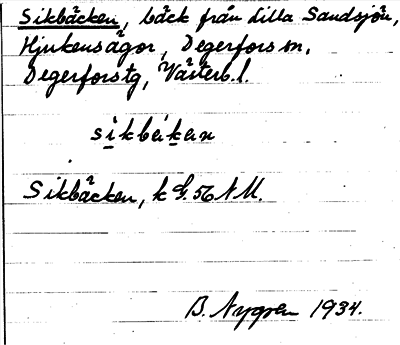 Sikbäcken, bäck från Lilla Sandsjön,
Hjukensågor, Degerfors sn,
Degerforstg, Västerb.l.
sikbäkεn
Sikbäcken, k G. 56 NM.
B. Nygren 1934.